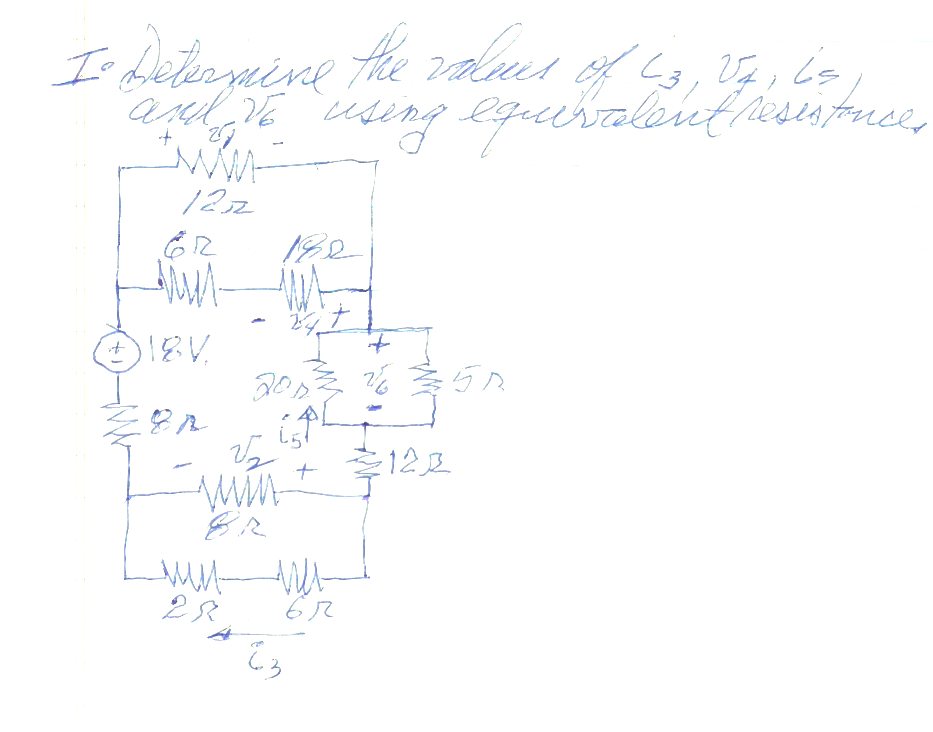 I. Determine the values of i3, v4, i5,
and v6 using equivalent resistances
+ v1 -
12Ω
6Ω 18Ω
- v4 +
18V.
+
20Ω v6 5Ω
-
8Ω i5
- v2 + 12Ω
8Ω
2Ω 6Ω
i3